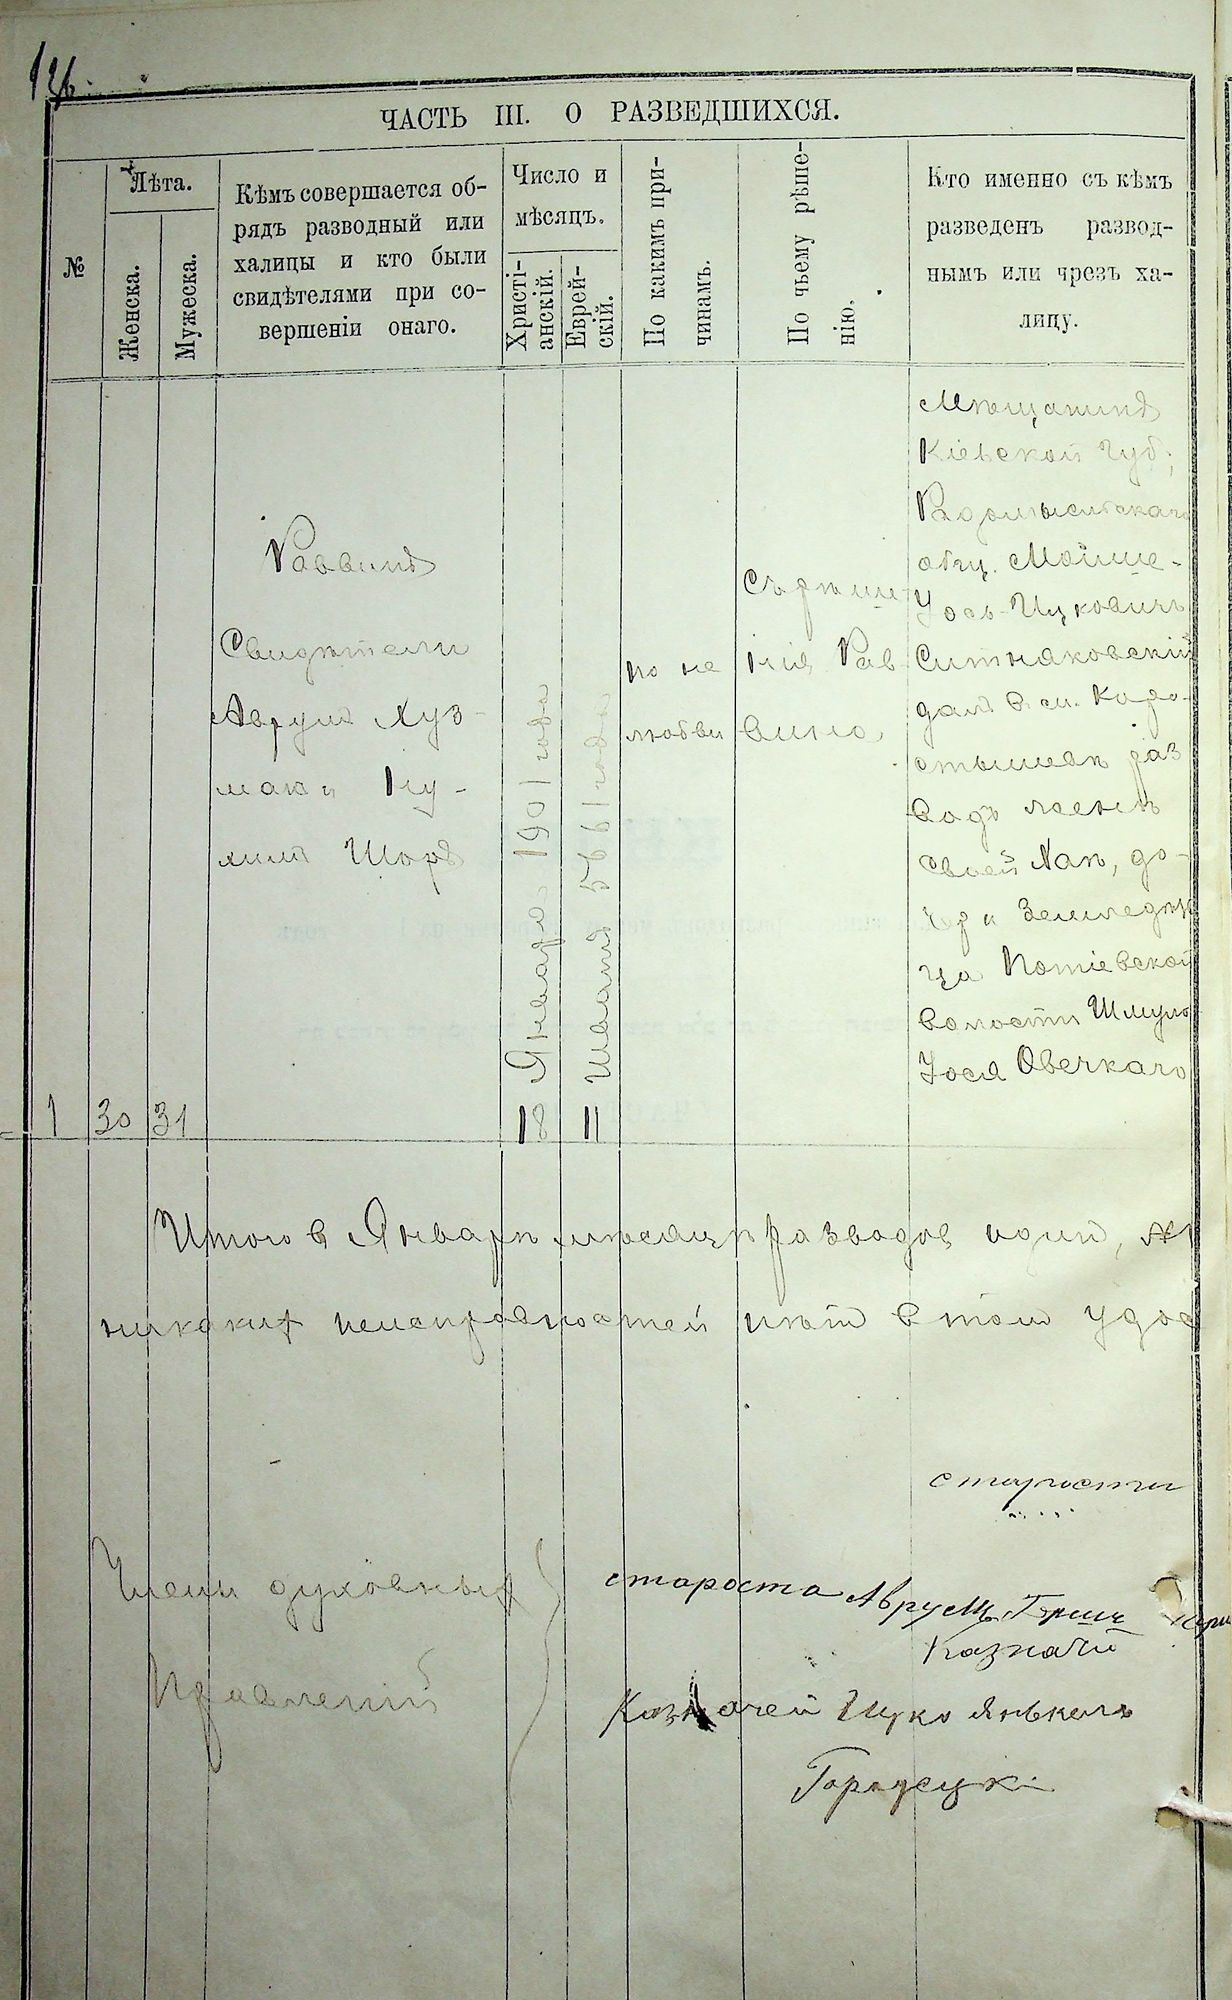 126
ЧАСТЬ III. О РАЗВЕДШИХСЯ.
№
Лѣта.
Женска.
Мужеска.
Кѣмъ совершается об-
рядъ разводный или
халицы и кто были
свидѣтелями при со-
вершеніи онаго.
Число и
мѣсяцъ.
Христі-
анскій.
Еврей-
скій.
По какимъ при-
чинамъ.
По чьему рѣше-
нію.
Кто именно съ кѣмъ
разведенъ развод-
нымъ или чрезъ ха-
лицу.
1
30
31
Раввинъ
Свидѣтели
Аврумъ Хуз-
мак и Ну-
химъ Шоръ
18
Января 1901 года
11
Шватъ 5661 года
по не
любви
Съ рѣше-
нія Рав
вина
Мѣщанинъ
Кіевской губ;
Радомысльскаго
общ. Мойше-
Іось Ицковичъ
Ситняковскій
далъ в м. Коро-
стышевѣ раз
водъ женѣ
своей Хаѣ, до-
чери Земледѣл
ца Потіевской
волости Шмуль
Іося Овечкаго
Итого в Январѣ мѣсяцѣ разводов один,
никаких неисправностей нѣтъ в том удос
старости
Члены духовных
Правлений
староста Аврумъ Герш
Казначи
Казначей Ицко Янькель
Городецкі